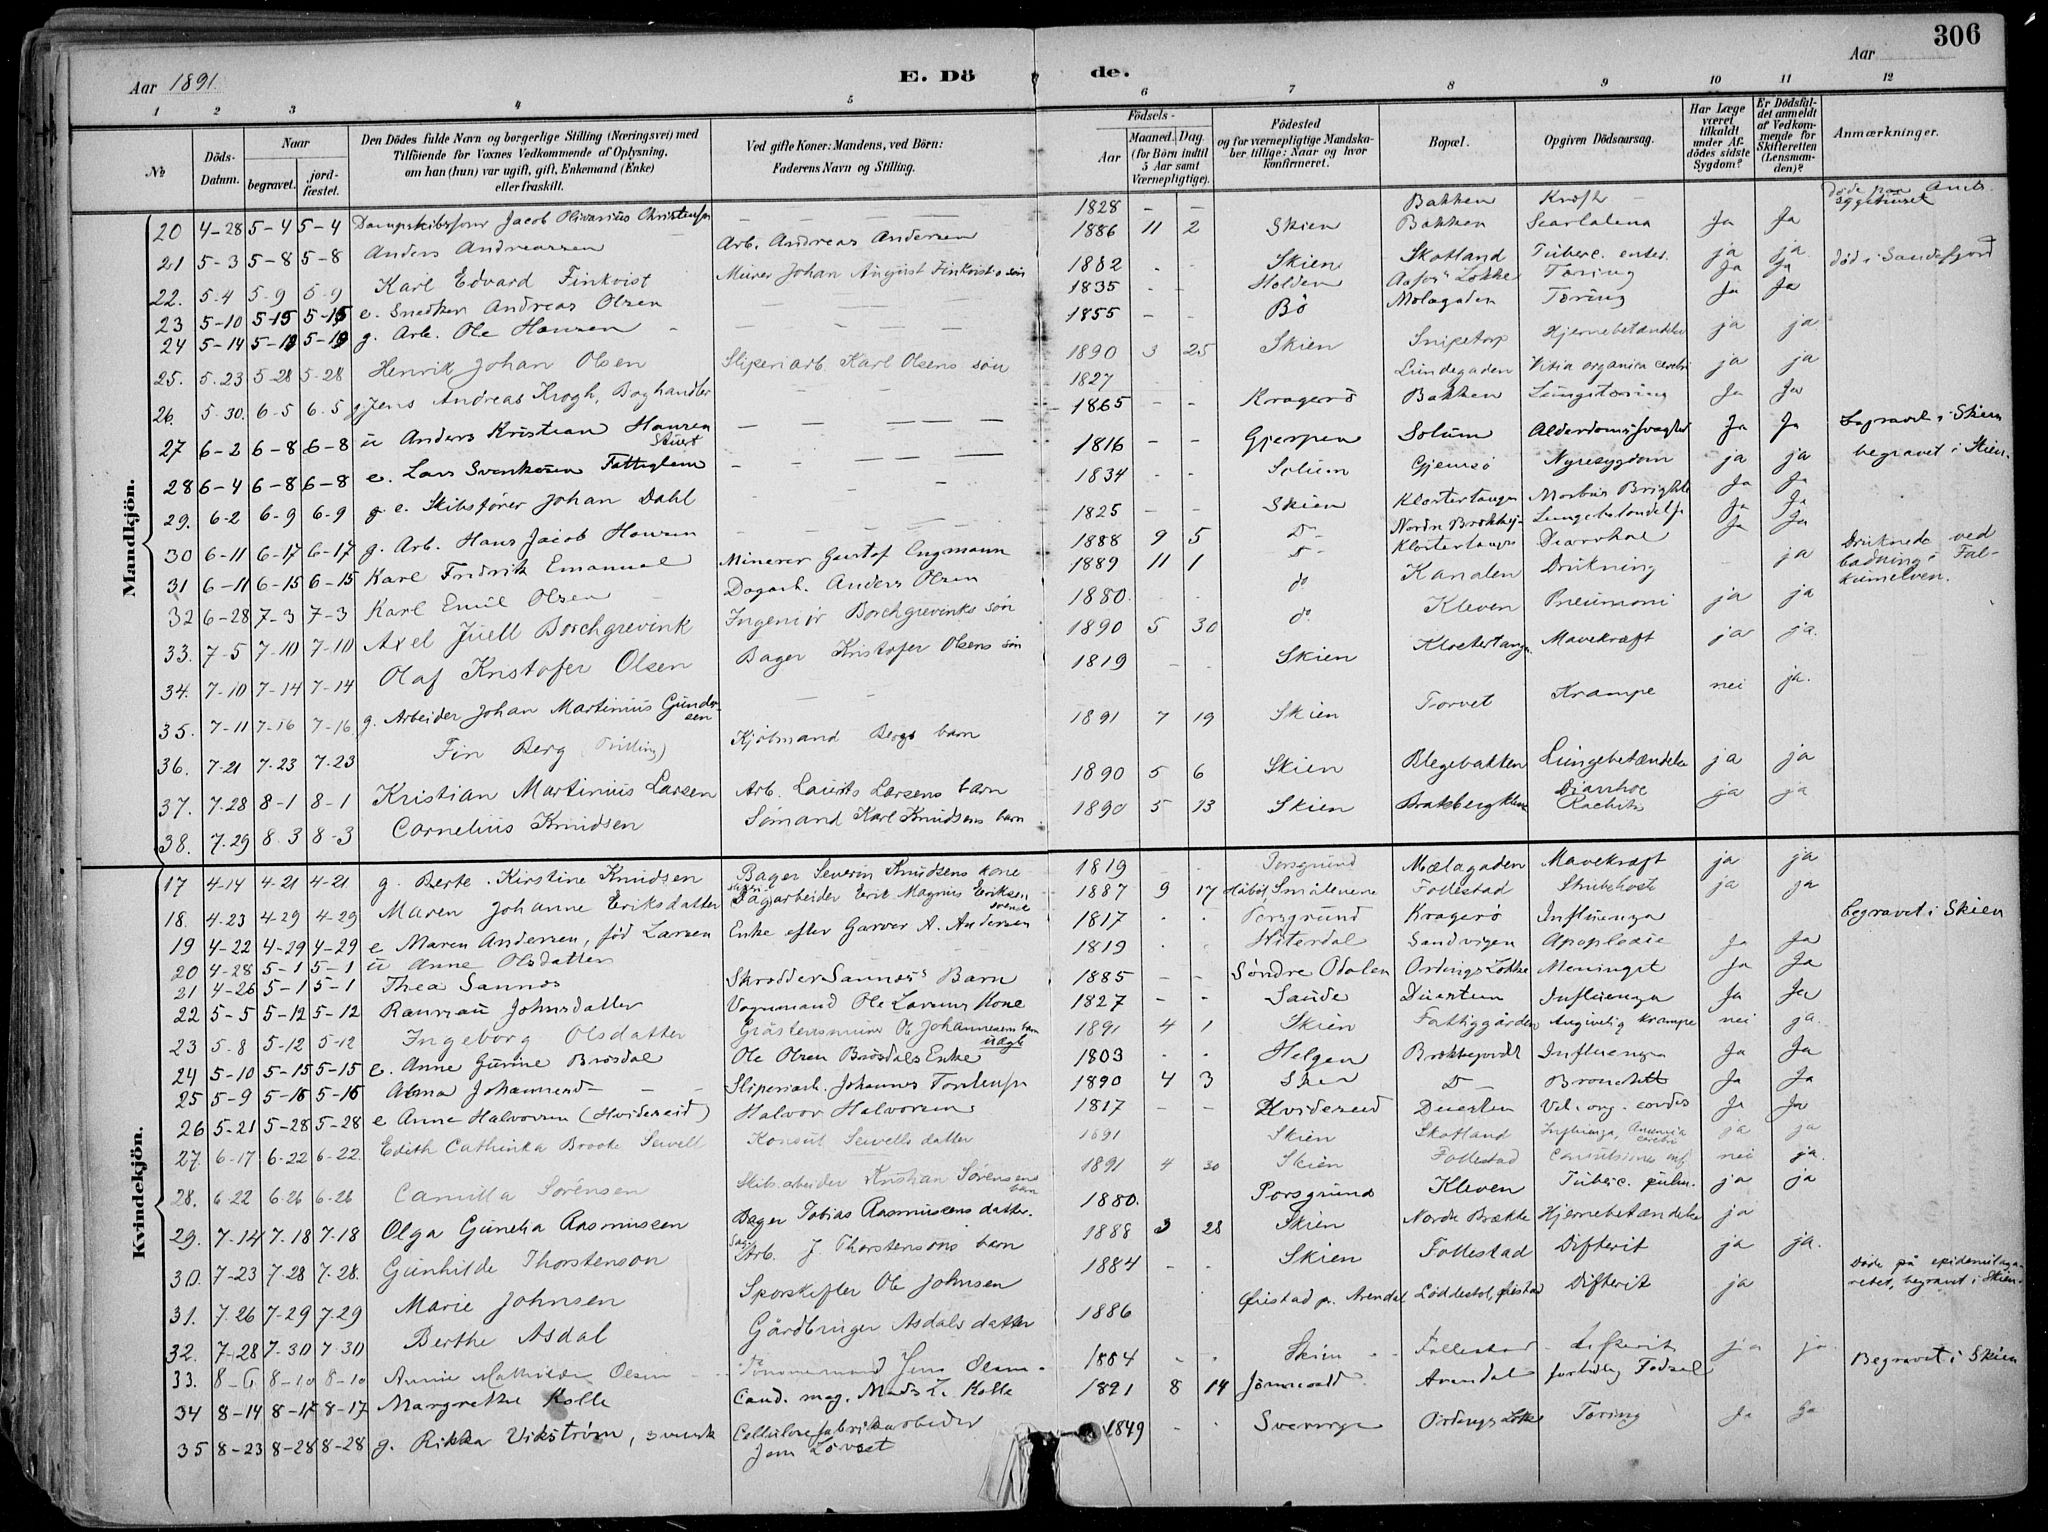 306
Aar 1891.
E. Dö de.
Aar
1 2 3 4 5 6 7 8 9 10 11 12
No
Döds-Datum.
Naar begravet. jordfæstet.
Den Dödes fulde Navn og borgerlige Stilling (Næringsvei) med Tilföiende for Voxnes Vedkommende af Oplysning, om han (hun) var ugift, gift, Enkemand (Enke) eller fraskilt.
Ved gifte Koner: Mandens, ved Börn: Faderens Navn og Stilling.
Födsels-
Aar
Maaned. Dag.
(for Börn indtil 5 Aar samt Værnepligtige).
Födested og for værnepligtige Mandskaber tillige: Naar og hvor konfirmeret.
Bopæl.
Opgiven Dödsaarsag.
Har Læge været tilkaldt under Afdödes sidste Sygdom?
Er Dödsfaldet anmeldt af Vedkommende for Skifteretten (Lensmanden)?
Anmærkninger.
Mandkjön.
20 4-28 5-4 5-4 Jacob Olivarius 1828 - - Bakken
21 5-3 5-8 5-8 Anders Andreassen Arb. Andreas Andersen 1886 11 2 Skien Bakken Scarlatena Ja Ja
22. 5-4 5-9 5-9 Karl Edvard Finkvist Murer Johan August Finkvists søn 1882 - - Skien Skotland Tuberc. enter. ja ja. död i Sandefjord
23 5-10 5-15 5-15 e. Snedker Andreas Olsen 1835 - - Holden Løkke Tæring Ja Ja
24 5-14 5-19 5-19 g. Arb. Ole Hansen 1855 - - Bö Molagaden Tæring Ja Ja
25. 5.23 5-28 5-28 Henrik Johan Olsen Sliperiarb. Karl Olsens søn 1890 3 25 Skien Snipetorp Hjernebetændelse ja ja
26. 5.30. 6-5 6.5 g. Jens Andreas Krogh, Boghandler 1827 Lundegaden Vitia organica cerebri ja ja
27 6-2 6-8 6-8 u Anders Kristian Hansen 1865 - - Kragerö Bakken Lungetæring Ja Ja
28 6-4 6-8 6-8 e. Lars Fattiglem 1816 - - Gjerpen Solum Ja Ja begravet i Skien
29. 6-2 6-9 6-9 e. Skibsfører Johan Dahl 1834 - - Solum Gjemsö Nyresygdom ja ja begravet i Skien.
30 6-11 6-17 6-17 g. Arb. Hans Jacob Hansen 1825 - - Skien Klostertangen Morbus Ja Ja
31 6-11 6-15 6-15 Karl Fridrik Emanuel Minerer Gustaf Engmann 1888 9 5 D- Nordre Ja Ja
32 6-28 7-3 7-3 Karl Emil Olsen Dagarb. Anders Olsen 1889 11 1 Klostertangen Diarrhoe Ja Ja
33. 7-5 7-10 7-10 Axel Juell Borchgrevink Ingeniør Borchgrevinks søn 1880. do Kanalen Drukning ja Druknede ved badning i Falkumelven.
34. 7-10 7-14 7-14 Olaf Kristofer Olsen Bager Kristofer Olsens søn 1890 5 30 do Kleven Pneumoni ja ja
35. 7-11 7-16 7-16 g. Arbeider Johan Martinius Gundersen 1819 - - Skien Klostertangen Mavekræft ja ja.
36. 7-21 7.23 7.23 Fin Berg (Tvilling) Kjøbmand Bergs barn 1891 7 19 Skien Torvet Krampe nei ja.
37. 7-28 8-1 8-1 Kristian Martinius Larsen Arb. Laurits Larsens barn 1890 5 6 Skien Blegebakken Lungebetændelse ja ja
38. 7.29 8.3 8-3 Cornelius Knudsen Sømand Karl Knudsens barn 1890 5 13 Skien Diarrhoe Rachitis ja ja
Kvindekjön.
17 4-14 4-21 4-21 g. Berte Kirstine Knudsen Bager Severin Knudsens kone 1819 Porsgrund Mælagaden Mavekræft ja ja
18. 4-23 4-29 4-29 Maren Johanne Eriksdatter Dagarbeider Erik Magnus Eriksen 1887 9 17 Smålenene Follestad Stubehoste ja ja
19 4-22 4-29 4-29 e Maren Andersen, fød Larsen Enke efter Garver A. Andersen 1817 Porsgrund Kragerö Influenza begravet i Skien
20 4-28 5-1 5-1 u Anne Olsdatter 1819 Hiterdal Sandvigen Apoplexie Ja Ja
21 4-26 5-1 5-1 Thea Sannos Skrædder Sannos' Barn 1885 - - Søndre Odalen Ordings Løkke Meningit Ja Ja
22 5-5 5-12 5-12 Johnsdatter Vognmand Ole Larsens Kone 1827 - - Saude Duesteen Influenza Ja Ja
23 5.8 5-12 5-12 Ingeborg Olsdatter Ole Johannesens barn uægte 1891 4 1 Skien Fattiggården Angivelig Krampe nei ja.
24 5-10 5-15 5-15 e. Anne Gurine Brösdal Ole Olsen Brösdals Enke 1803 Helgen Influenza Ja Ja
25 5-9 5-16 5-16 Alma Johannesd- Sliperiarb. Johannes 1890 4 3 Skien D- Ja Ja
26 5-21 5-28 5-28 e Anne Halvorsen (Hvideseid) Halvor Halvorsen 1817 - - Kvideseid Duesten Vit. org. cordis Ja Ja
27. 6-17 6-22 6-22. Edith Cathinka Brooke Sewell Konsul Sewells datter 1891 Skien Skotland Influenza, cerebri ja ja
28. 6-22 6-26 6-26 Camilla Sörensen Skibsarbeider Kristian Sørensens barn 1891 4 30 Skien Follestad nei ja.
29. 7-14 7-18 7-18 Olga Gunelia Rasmussen Bager Tobias Rasmussens datter. 1880. Porsgrund Kleven Tuberc. pulm. ja ja
30. 7-23 7-28 7-28. Gunhilde Thorstenson Arb. J. Thorstensons barn 1888 3 28 Skien Nordre Brække Hjernebetændelse ja
31. 7.26 7-29 7.29 Marie Johnsen Sporskifter Ole Johnsen 1884 - - Skien Follestad Difterit ja ja.
32. 7-28 7-30 7.30 Berthe Asdal Gårdbruger Asdals datter 1886 Øiestad pr. Arendal Difterit ja Döde på begravet i Skien.
33. 8-6 8-10 8-10 Annie Mathilde Olsen Tömmermand Jens Olsen 1884 - Skien Follestad Difterit ja ja
34 8-14 8-17 8-17 Margrethe Kolle Cand. mag. Mads L. Kolle 1891 8 14 Arendal Fødsel Begravet i Skien
35 8-23 8-28 8-28 g. Rikka Vikström, svensk Cellulosefabrikarbeider 1849 - Sverrige Ordings Løkke Tæring Ja Ja